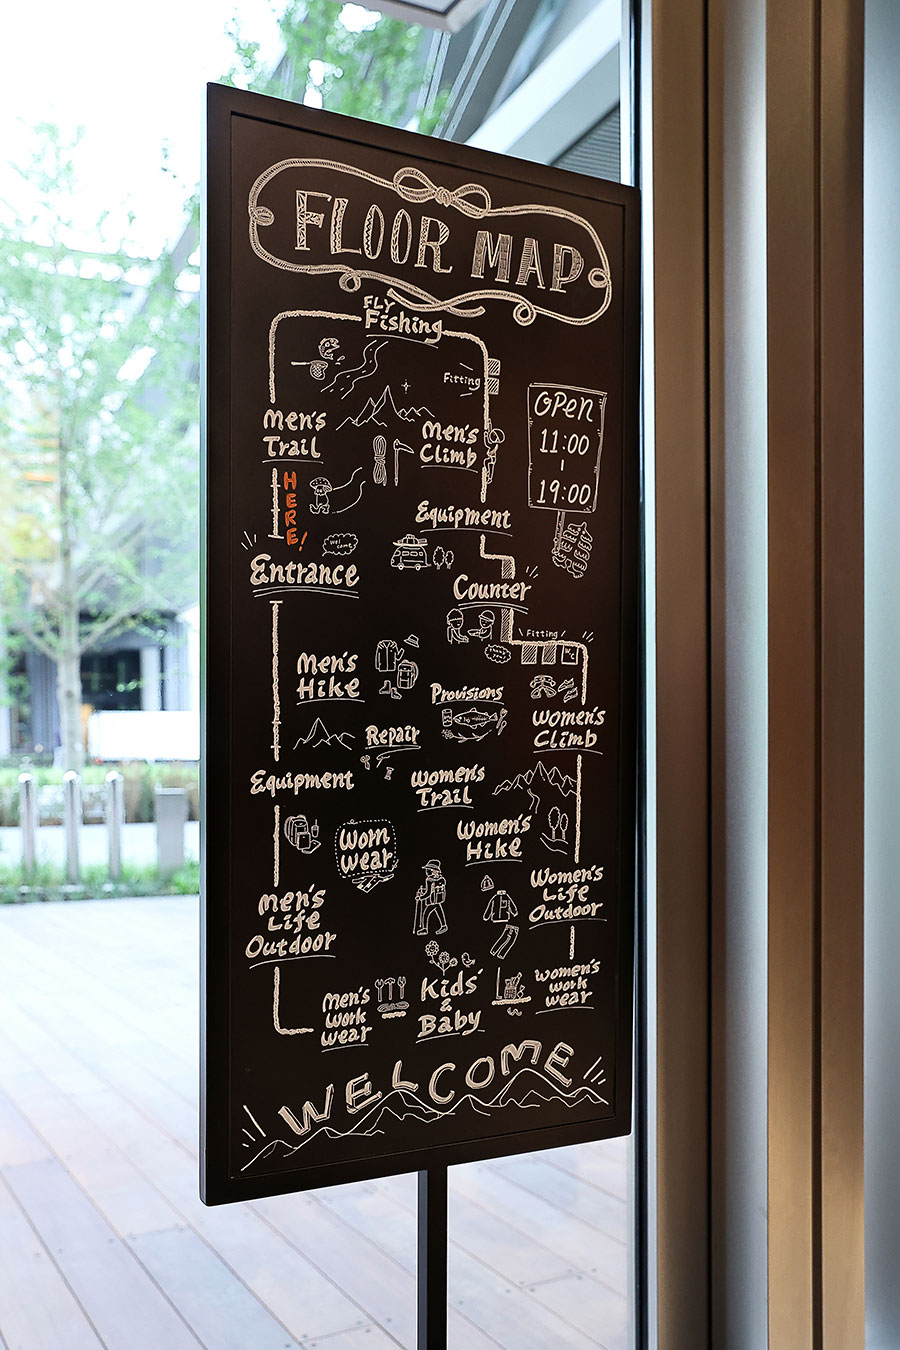 FLOOR MAP
FLY
Fishing
Fitting
OPEN
11:00
-
19:00
Men's
Trail
Men's
Climb
HERE!
Equipment
Wel
come
Entrance
Counter
Fitting
W.C
Thank
you
Men's
Hike
Provisions
Women's
Climb
Repair
Equipment
Women's
Trail
Worn
wear
Women's
Hike
Women's
Life
Outdoor
Men's
Life
Outdoor
Men's
Work
wear
Kids'
&
Baby
Women's
work
wear
WELCOME